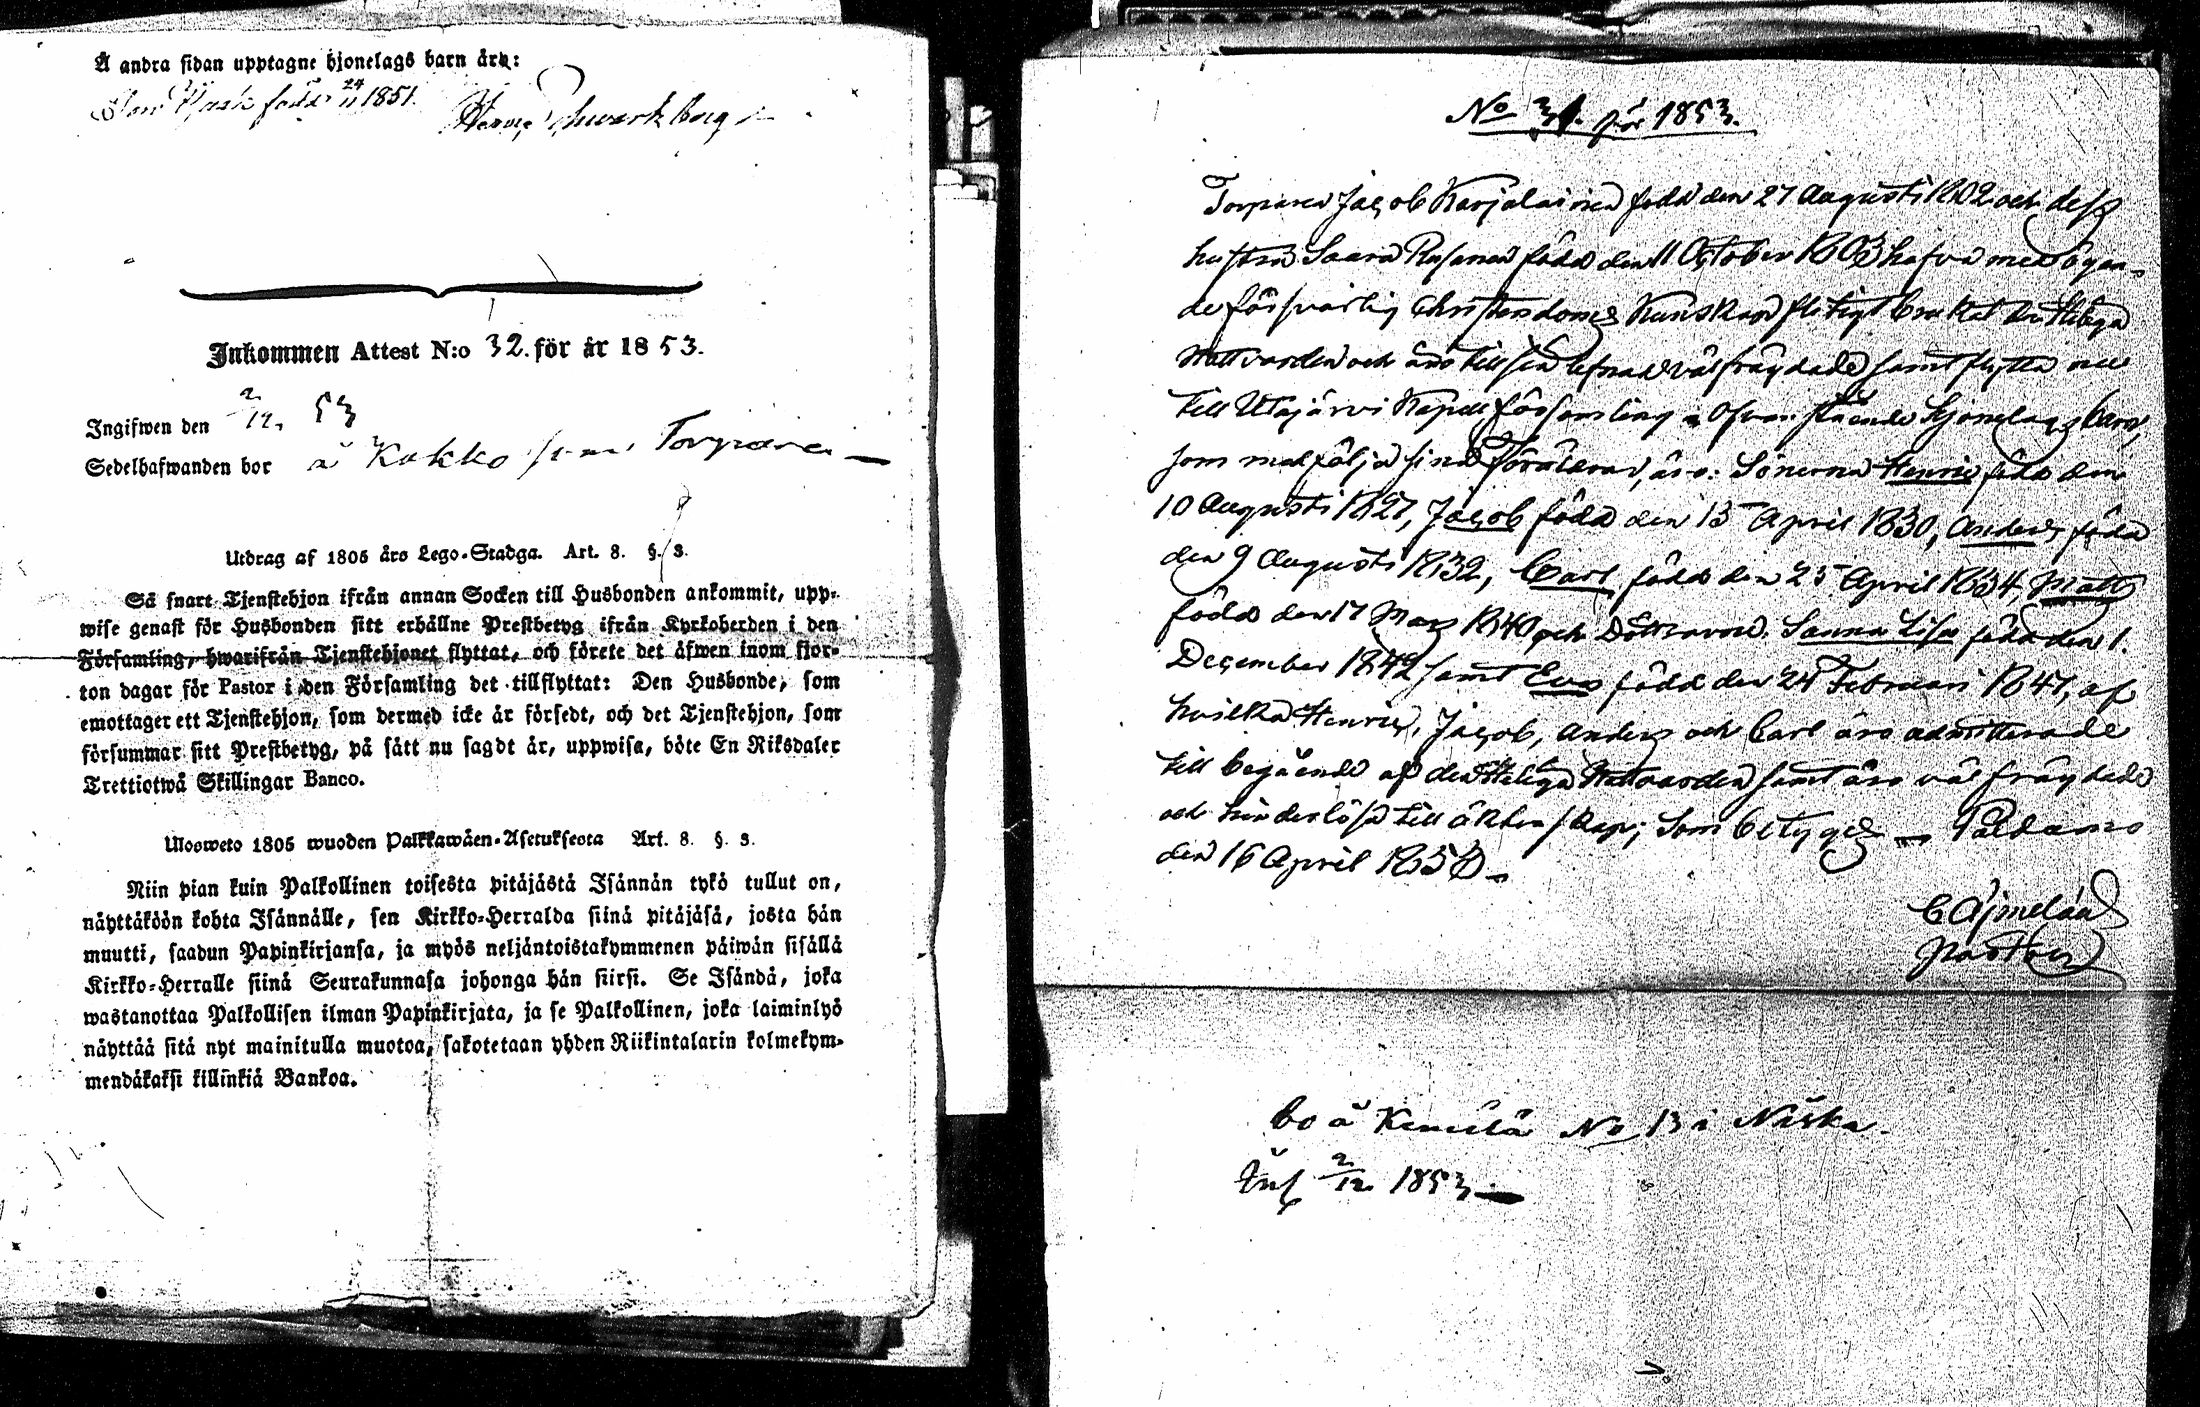 Å andra sidan upptagne hjonelags barn äro:
född 24/11 1851.
Inkommen Attest N:o 32. för år 1853.
Ingifwen den 2/12. 53
Sedelhafwanden bor å Kokko som Torpare
Utdrag af 1805 års Lego-Stadga. Art. 8. §. 3.
Så snart Tjenstehjon ifrån annan Socken till Husbonden ankommit, upp-
wise genast för Husbonden sitt erhållne Prestbetyg ifrån Kyrkoherden i den
Församling, hwarifrån Tjenstehjonet flyttat, och förete det äfwen inom fjor-
ton dagar för Pastor i den Församling det tillflyttat: Den Husbonde, som
emottager ett Tjenstehjon, som dermed icke är försedt, och det Tjenstehjon, som
försummar sitt Prestbetyg, på sätt nu sagdt är, uppwisa, böte En Riksdaler
Trettiotwå Skillingar Banco.
Uloswето 1805 wuoden Palkkawäen-Asetuksesta Art. 8. §. 3.
Niin pian kuin Palkollinen toisesta pitäjästä Isännän tykö tullut on,
näyttäköön kohta Isännälle, sen Kirkko-Herralda siinä pitäjäsä, josta hän
muutti, saadun Papinkirjansa, ja myös neljäntoistakymmenen päiwän sisällä
Kirkko-Herralle siinä Seurakunnasa johonga hän siirsi. Se Isändä, joka
wastanottaa Palkollisen ilman Papinkirjata, ja se Palkollinen, joka laiminlyö
näyttää sitä nyt mainitulla muotoa, sakotetaan yhden Riikintalarin kolmekym-
mendäkaksi killinkiä Bankoa.
No 31. för 1853.
Torparen Jacob Karjalainen född den 27 Augusti 1802 och dess
hustru Saara född den 11 October 1803 hafva med ägan-
de försvarlig Christendoms Kunskap flitigt brukat den Heliga
Nattvarden och äro till sin lefnad välfrägdade samt flytta nu
till Utajärvi Kapell församling. Ofvan stående Hjonelags barn,
som medfölja sina Föräldrar, äro: Sönerna Henric född den
10 Augusti 1827, Jacob född den 15 April 1830, Anders född
den 9 Augusti 1832, Carl född den 25 April 1834, Matts
född den 17 Mars 1840 och Döttrarne Sanna Lisa född den 1.
December 1842 samt Eva född den 24 Februari 1847, af
hvilka Henric, Jacob, Anders och Carl äro admitterade
till begående af den Heliga Nattvarden samt äro välfrägdade
och hinderlösa till äktenskap; Som betygas Paldamo
den 16 April 1853
Pastor
bo å No 13 i Niska.
Inl 2/12 1853